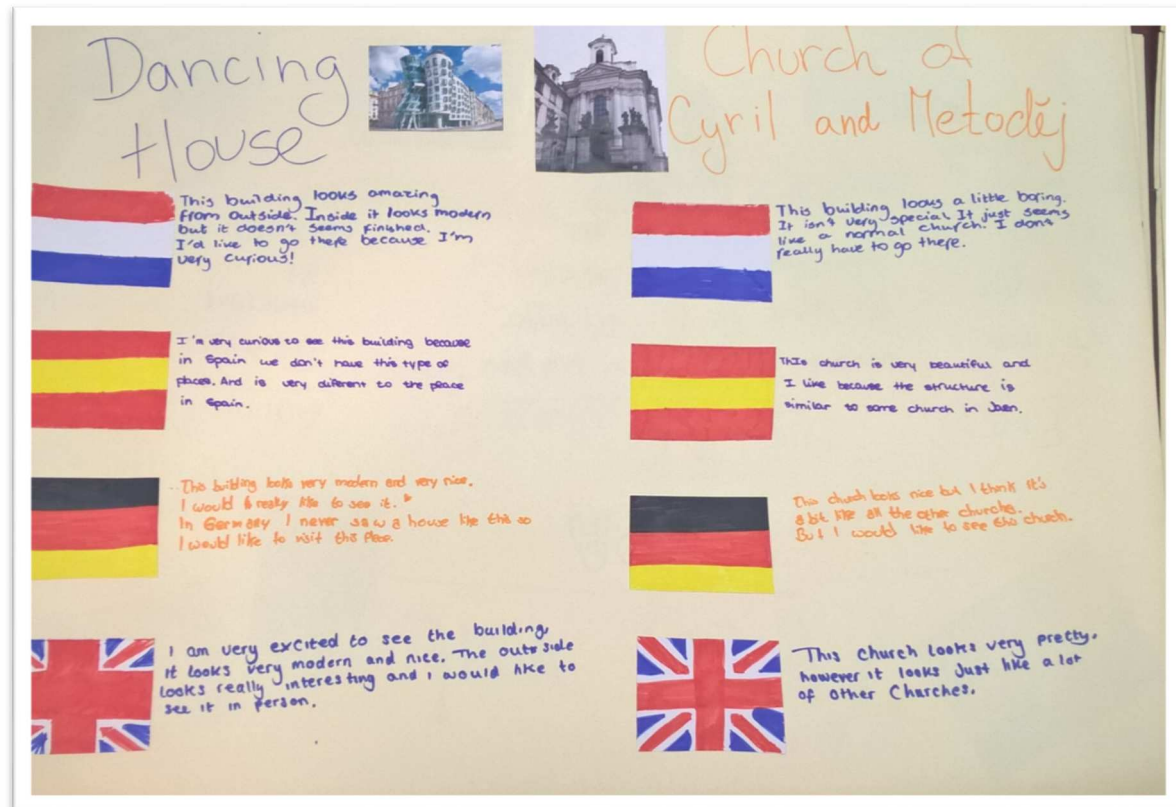 Dancing
House
This building looks amazing
from outside. Inside it looks modern
but it doesn't seems finished.
I'd like to go there because I'm
very curious!
I'm very curious to see this building because
in Spain we don't have this type of
places. And is very diferent to the place
in Spain.
This building looks very modern and very nice.
I would really like to see it.
In Germany I never saw a house like this so
I would like to visit this place.
I am very excited to see the building,
it looks very modern and nice. The outside
looks really interesting and i would like to
see it in person.
Church of
Cyril and Metoděj
This building looks a little boring.
It isn't very special. It just seems
like a normal church. I don't
really have to go there.
This church is very beautiful and
I like because the structure is
similar to some church in Jaen.
This church looks nice but I think it's
a bit like all the other churches.
But I would like to see this church.
This church looks very pretty,
however it looks just like a lot
of other Churches.